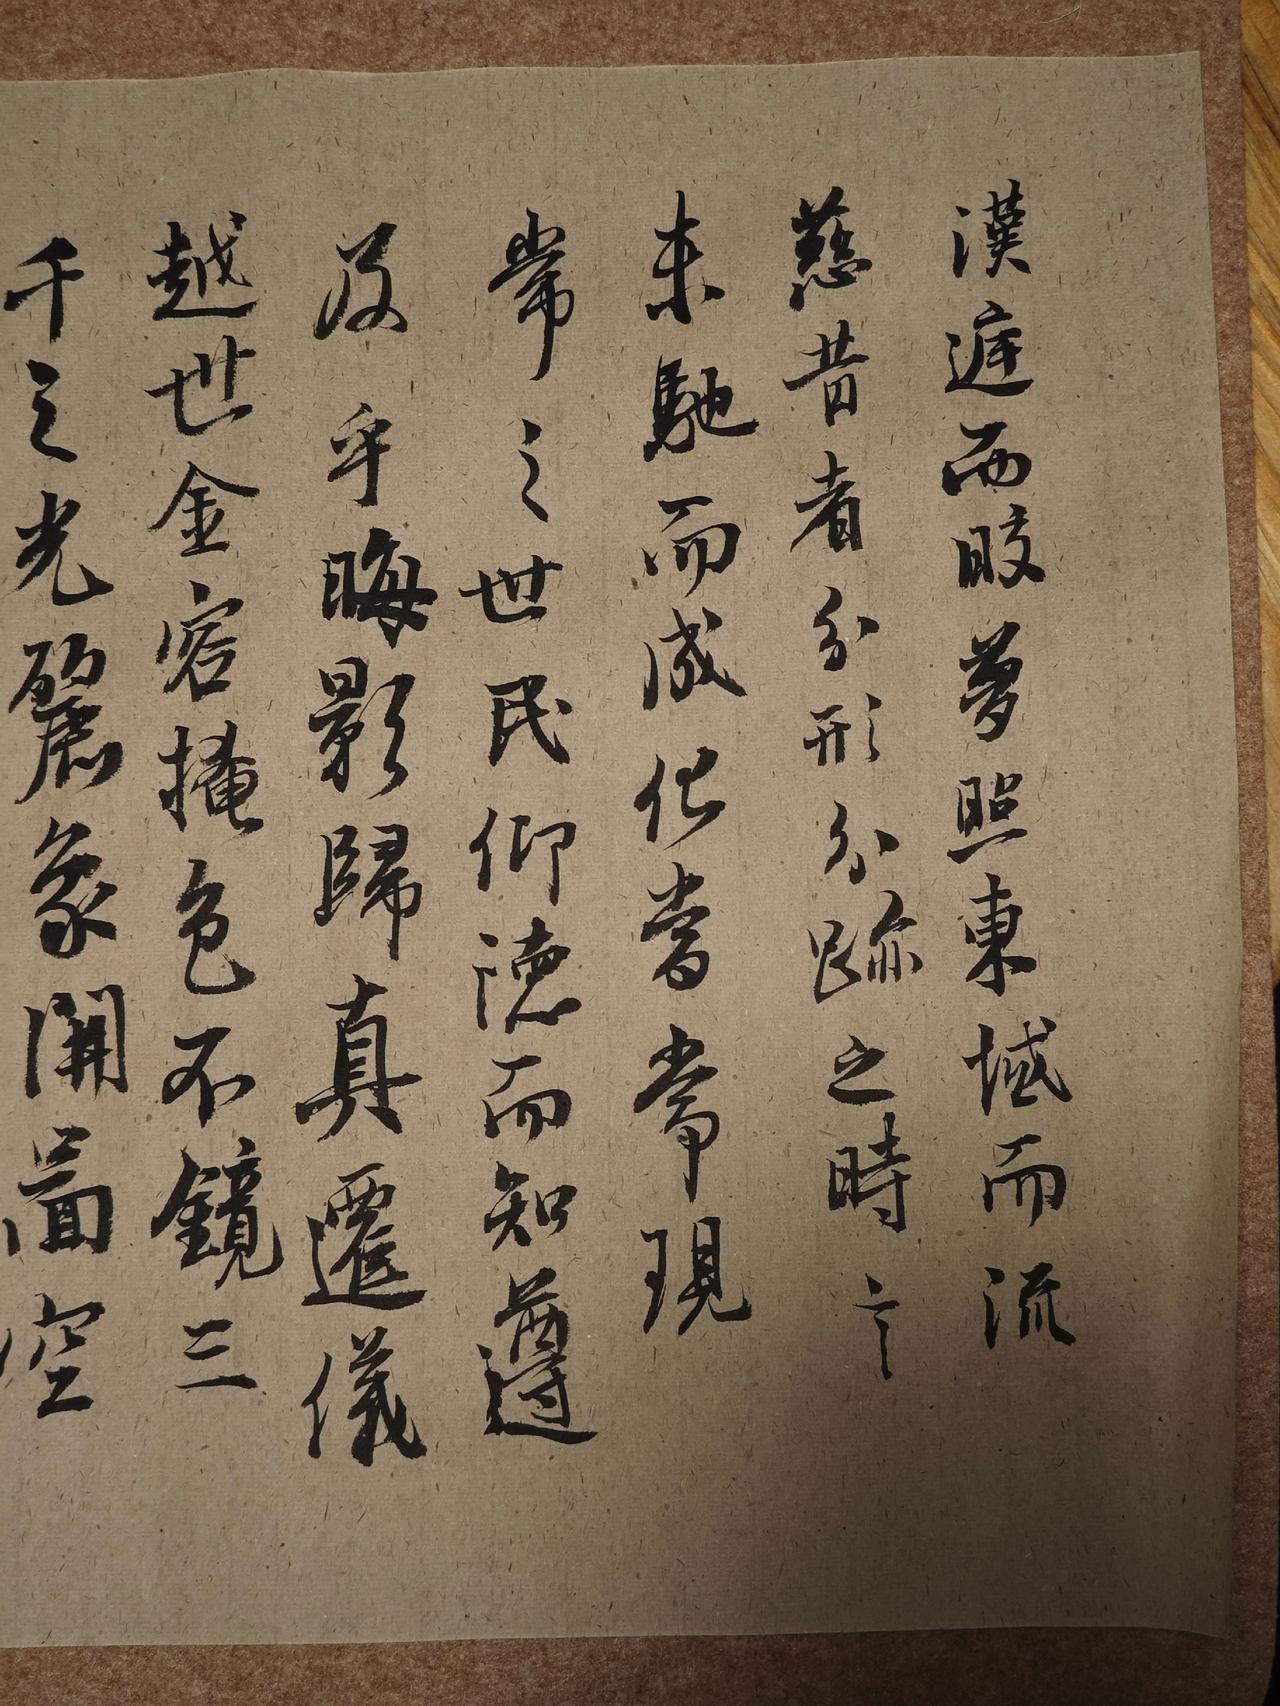 漢庭而皎夢照東域而流
慈昔者分形分跡之時言
未馳而成化當常現
常之世民仰德而知遵
及乎晦影歸真遷儀
越世金容掩色不鏡三
千之光麗象開圖空